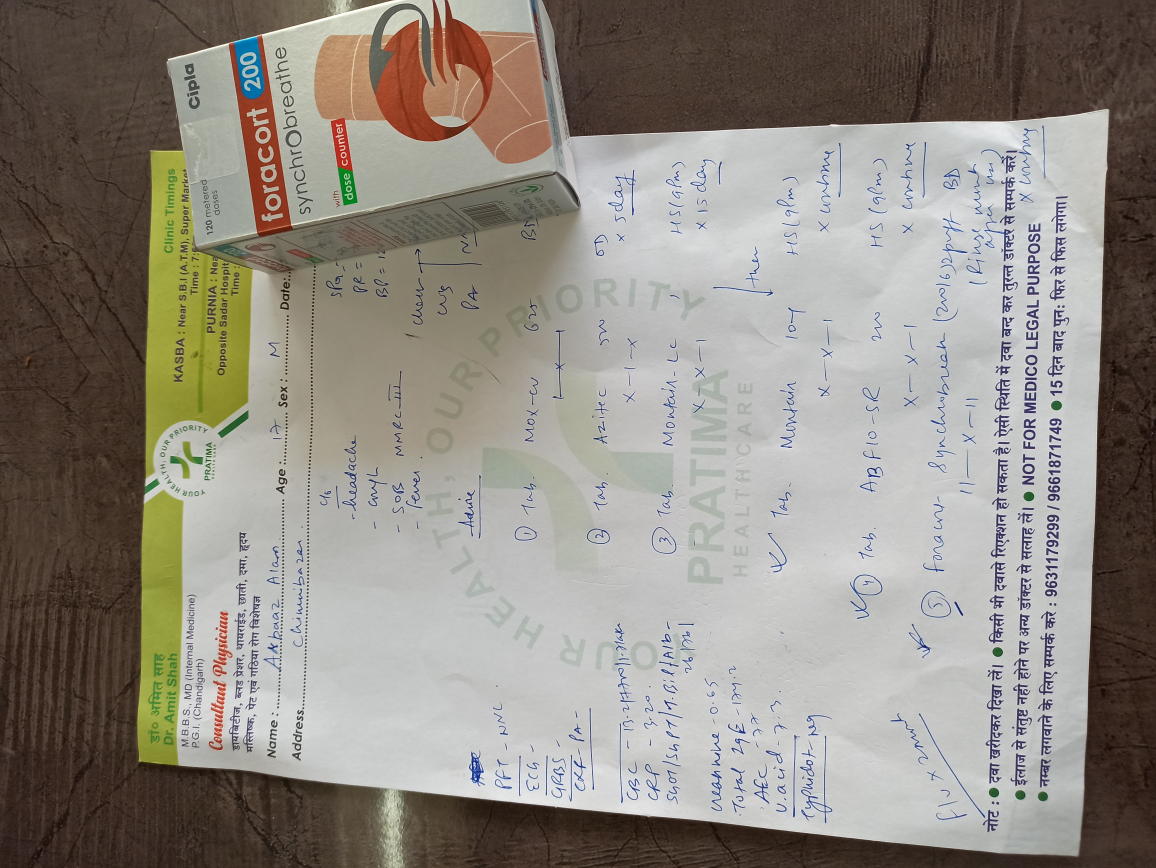 डॉ० अमित साह
Dr. Amit Shah
M.B.B.S., MD (Internal Medicine)
P.G.I. (Chandigarh)
Consultant Physician
डायबिटीज, ब्लड प्रेशर, थायराईड, छाती, दमा, हृदय
मस्तिष्क, पेट एवं गठिया रोग विशेषज्ञ
YOUR HEALTH, OUR PRIORITY
PRATIMA
Clinic Timings
KASBA : Near S.B.I (A.T.M), Super Market
Time : 7:
PURNIA : Nea
Opposite Sadar Hospit
Time :
Name : Akbaaz Alam Age : 17 Sex : M Date:
Address. Chimnibazar
C/o
- headache
- cough
- SOB MMRC III
- fever.
SPO2 -
PR =
BP = 1
chest
CVS
PA
Advice
① Tab. Mox-cv 625 BD
1 — x — 1
x 5 day
② Tab. Azitec 500 OD
x - 1 - x
③ Tab. Montair-LC HS (9pm)
x - x - 1 x 15 day
then
Tab. Montair 10mg HS (9pm)
x - x - 1 x continue
④ Tab. ABF10-SR 200 HS (9pm)
x - x - 1 x continue
⑤ Foracort Synchrobreath (200/6) 2puff BD
11 — x — 11 (Rinse mouth after use)
x continue
PFT - NNL
ECG -
GRBS -
CXR PA -
CBC - 13.2/
CRP - 3.20
SGOT/SGPT/T.Bil/Alb -
26/17/
creatinine - 0.65
Total IgE - 174.2
AEC - 77
U. acid - 7.3
Typhidot - Ng
F/U x 2mnth
YOUR HEALTH, OUR PRIORITY
PRATIMA
HEALTHCARE
नोट : ● दवा खरीदकर दिखा लें। ● किसी भी दवासे रिएक्शन हो सकता है। ऐसी स्थिति में दवा बन्द कर तुरन्त डॉक्टर से सम्पर्क करें।
● ईलाज से संतुष्ट नही होने पर अन्य डॉक्टर से सलाह लें। ● NOT FOR MEDICO LEGAL PURPOSE
● नम्बर लगवाने के लिए सम्पर्क करे : 9631179299 / 9661871749 ● 15 दिन बाद पुनः फिर से फिस लगेगा।
Cipla
120 metered
doses
foracort 200
synchrobreathe
with
dose counter